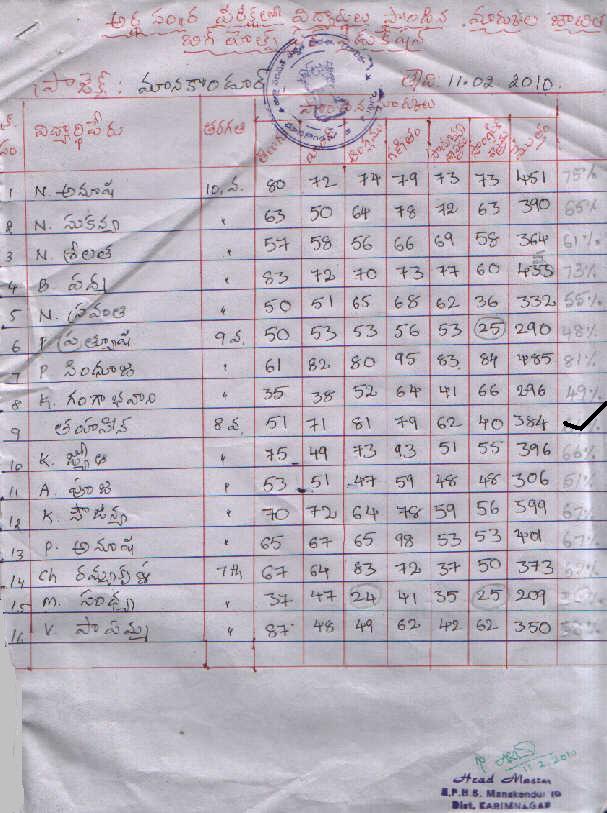 అర్థ సంవత్సర పరీక్షలలో విద్యార్థులు సాధించిన మార్కుల జాబితా
ప్రాజెక్ట్ : మానకొండూర్ తేది: 11.02 2010.
సాధించిన మార్కులు
క్ర. సం. విద్యార్థి పేరు తరగతి తెలుగు హిందీ ఇంగ్లీషు గణితం మొత్తం
1 N. అనూష 10 వ. 80 72 74 79 73 73 451 75%
2 N. సుకన్యా " 63 50 64 78 72 63 390 65%
3 N. శ్రీలత " 57 58 56 66 69 58 364 61%
4 B. పద్మ " 83 72 70 73 77 60 435 73%
5 N. స్రవంతి " 50 51 65 68 62 36 332 55%
6 P ప్రత్యూష 9 వ. 50 53 53 56 53 25 290 48%
7 P. సింధూజ " 61 82 80 95 83 84 485 81%
8 K. గంగా భవాని " 35 38 52 64 41 66 296 49%
9 తహసీన 8 వ. 51 71 81 79 62 40 384
10 K. జ్యోతి " 75 49 73 93 51 55 396 66%
11 A. పూజ " 53 51 47 59 48 48 306 51%
12 K. సౌజన్య " 70 72 64 78 59 56 399 67%
13 P. అనూష " 65 67 65 98 53 53 401 67%
14 Ch రమ్యశ్రీ 7th 67 64 83 72 37 50 373 62%
15 M. సంధ్య " 37 47 24 41 35 25 209
16 V. " 87 48 49 62 42 62 350
11.2.2010
Head Master
Z.P.H.S. Manakondur
Dist. KARIMNAGAR